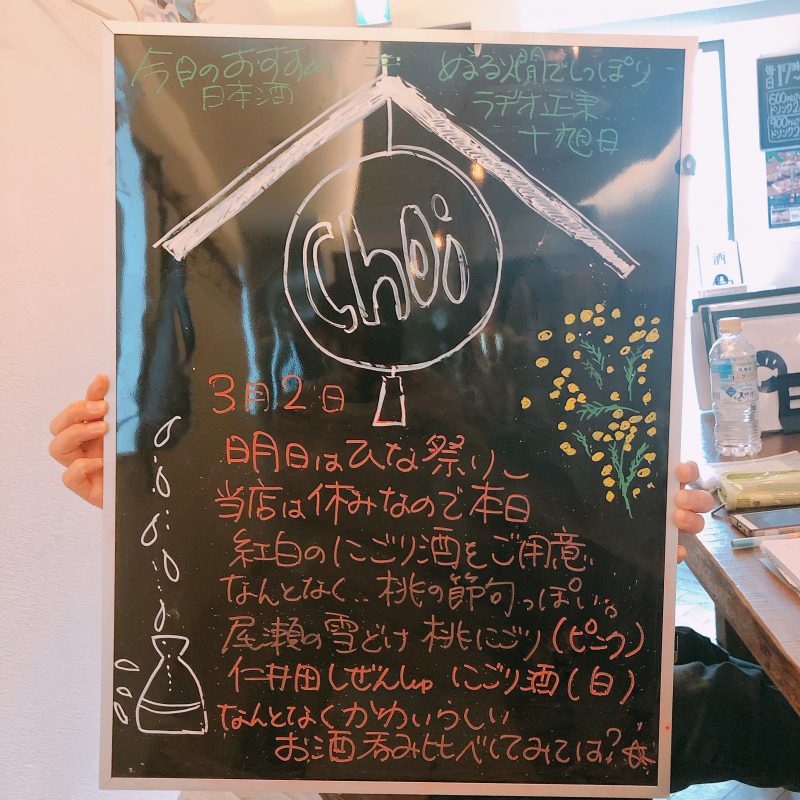 今日のおすすめ
日本酒
ぬる燗でしっぽり
ラヂオ正宗
十旭日
choi
3月2日
明日はひな祭り。
当店は休みなので本日
紅白のにごり酒をご用意
なんとなく、桃の節句っぽい。
尾瀬の雪どけ 桃にごり(ピンク)
仁井田しぜんしゅ にごり酒(白)
なんとなくかわいらしい
お酒呑み比べしてみては?☆